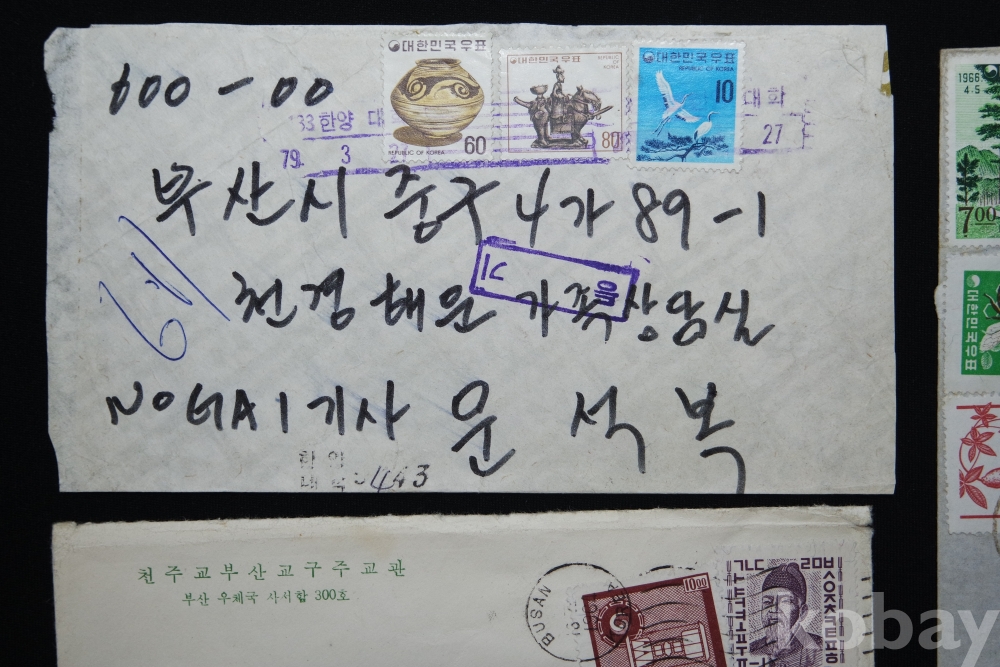 600-00
대한민국우표
REPUBLIC OF KOREA
60
대한민국우표
REPUBLIC OF KOREA
80
대한민국우표
REPUBLIC OF KOREA
10
한양 대
대화
79. 3
27
부산시 중구 4가 89-1
천경해운 가족상담실
NOGAI 기사 윤석복
443
천주교부산교구주교관
부산 우체국 사서함 300호
BUSAN
10.00
1966
4.5
7.00
대한민국우표
kobay